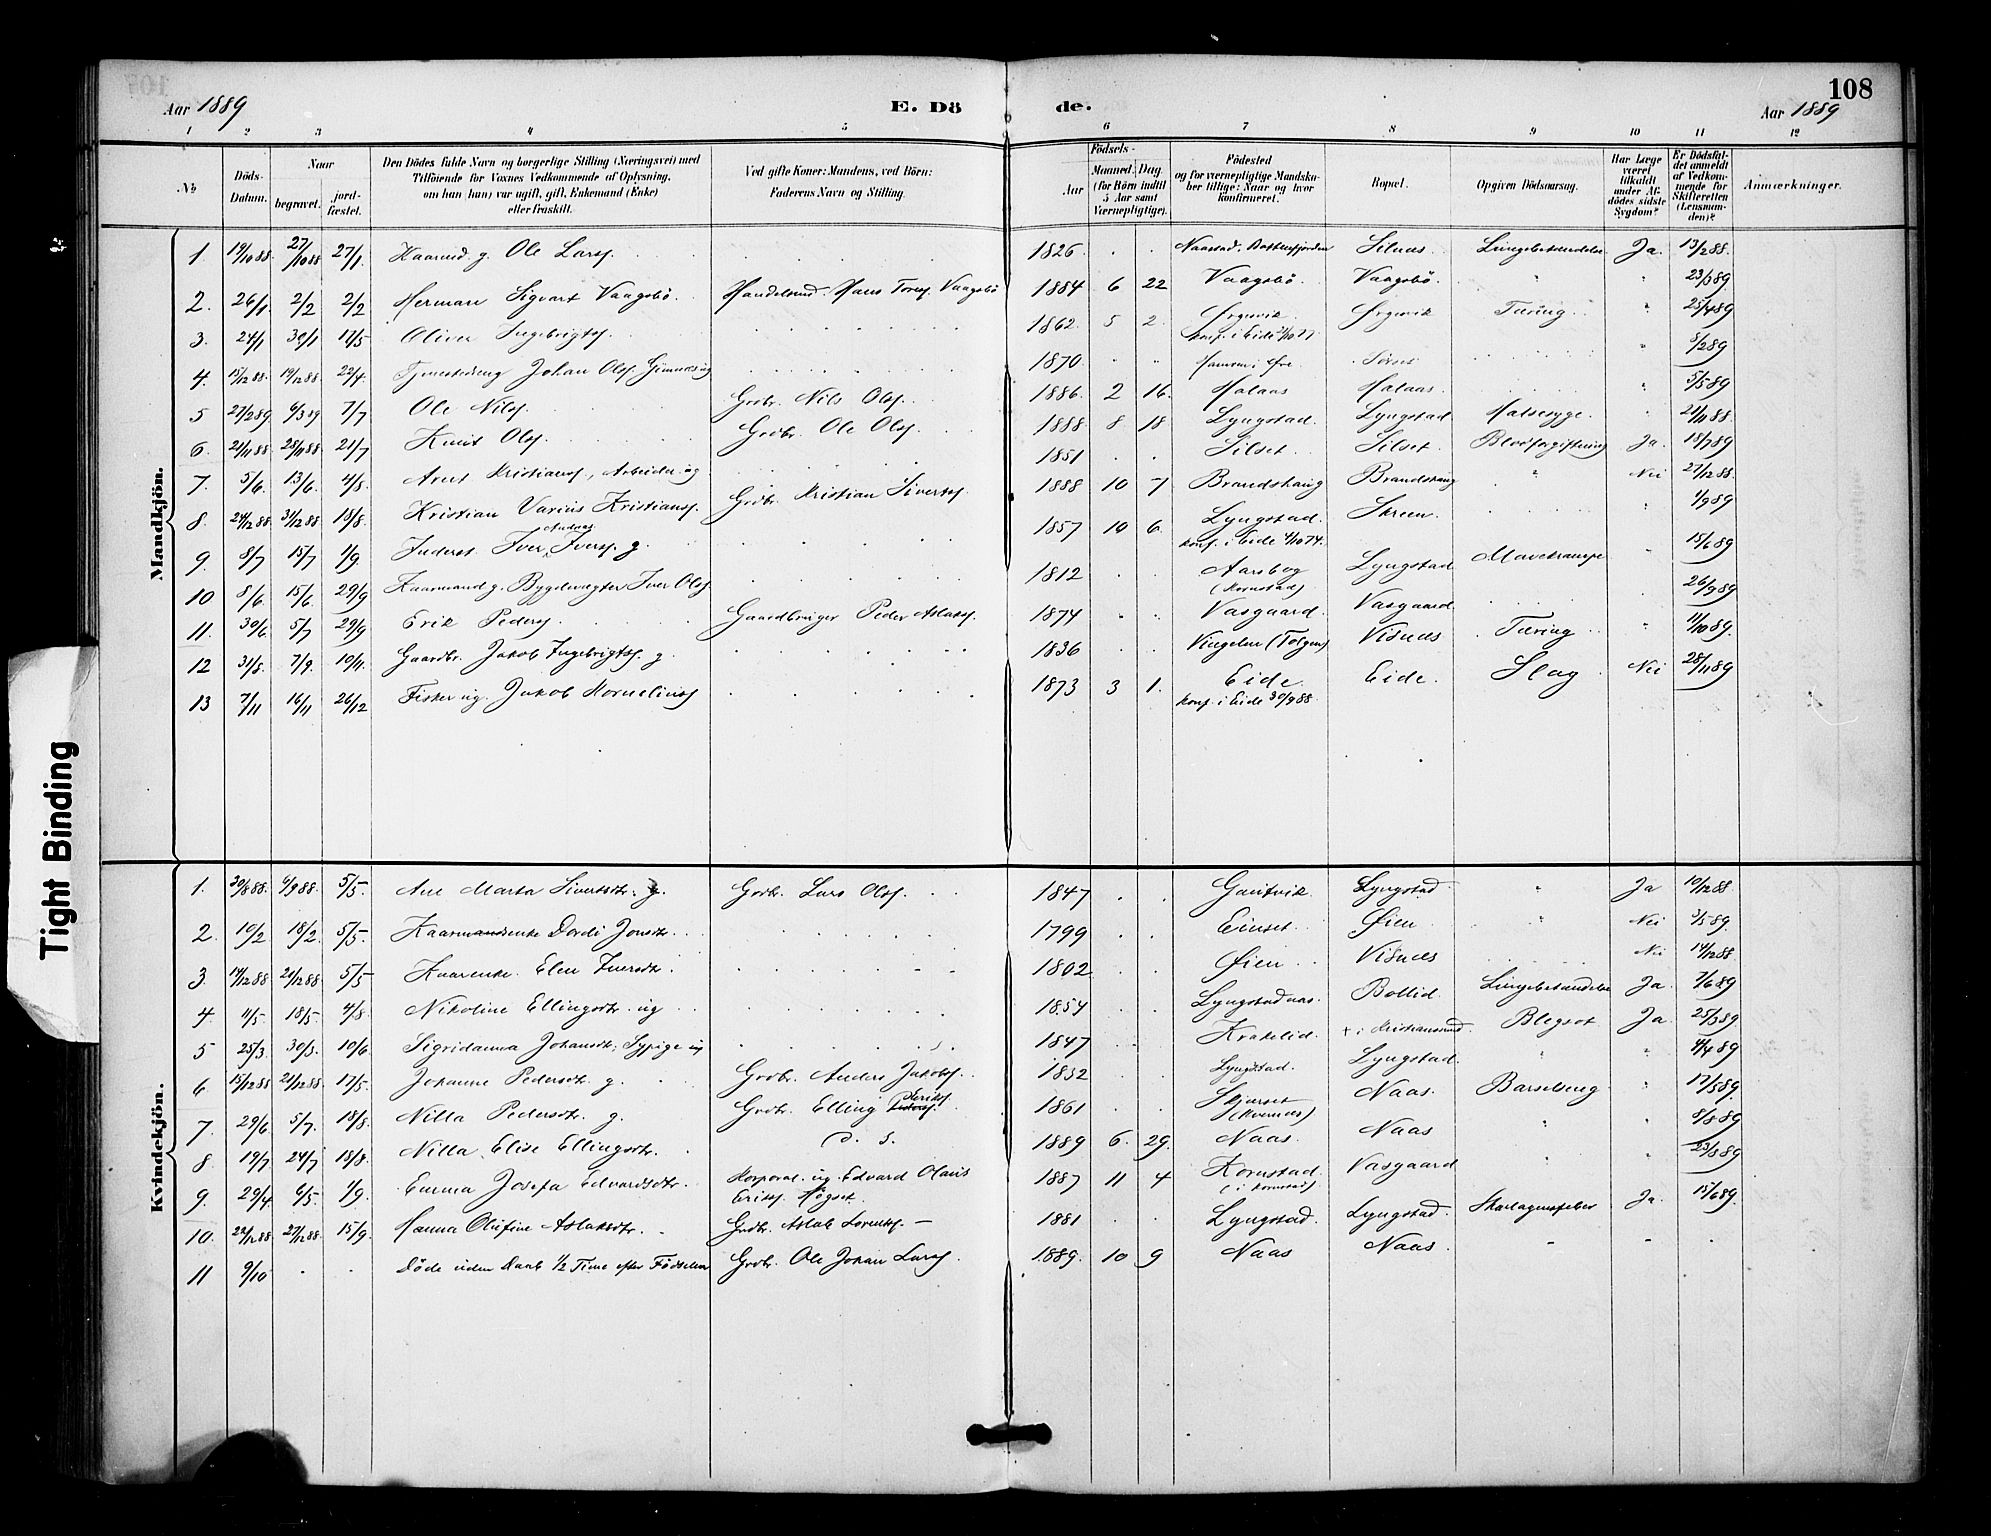 108
Aar 1889
E. Dö
de.
Aar 1889
1 2 3 4 5 6 7 8 9 10 11 12
No
Döds-Datum.
Naar
begravet.
jord-fæstet.
Den Dödes fulde Navn og borgerlige Stilling (Næringsvei) med
Tilföiende for Voxnes Vedkommende af Oplysning,
om han (hun) var ugift, gift, Enkemand (Enke)
eller fraskilt.
Ved gifte Koner: Mandens, ved Börn:
Faderens Navn og Stilling.
Födsels-
Aar
Maaned. Dag
(for Börn indtil
5 Aar samt
Værnepligtige).
Födested
og for værnepligtige Mandska-
ber tillige: Naar og hvor
konfirmeret.
Bopæl.
Opgiven Dödsaarsag.
Har Læge
været
tilkaldt
under Af-
dödes sidste
Sygdom?
Er Dödsfal-
det anmeldt
af Vedkom-
mende for
Skifteretten
(Lensman-
den)?
Anmærkninger.
Mandkjön.
1 19/10 88 27/10 88 27/1 Kaarmd g. Ole Larss. 1826 Naastad. Battenfjorden Silnæs. Lungebetændelse Ja. 13/2 88.
2. 26/1 2/2 2/2 Herman Sigvart Vaagsbö. Handelsmd. Hans Toress. Vaagsbö 1884 6 22 Vaagsbö. Vaagsbö. " " 23/3 89
3. 24/1 30/1 11/5 Oliver Ingebrigts. 1862. 5 2. Ørgevik Ørgevik Tæring " 25/4 89
konf. i Eide
4. 15/12 88. 19/12 88 22/4. Tjenestedreng Johan Ols. Gimnæs ug 1870 Sörset " 5/2 89
5 27/2 89 6/3 89 7/7 Ole Nilss. Grdbr. Nils Olss. 1886 2 16. Halaas Halaas. " 5/5 89
6. 21/11 88 28/11 88 21/7 Knut Olss. Grdbr. Ole Olss. 1888 8 18 Lyngstad. Lyngstad Halsesyge. " 21/11 88.
7. 5/6. 13/6. 4/8. Arnt Kristianss., Arbeider ug 1851 Silset Silset Blodforgiftning Ja. 18/7 89
8 24/12 88 31/12 88 18/8. Kristian Varius Kristianss. Grdbr. Kristian Siverts. 1888 10 7 Brandshaug Brandshaug " Nei 27/12 88.
9. 8/7 15/7 1/9. Inderst. Iver Andreas Iverss. g. 1857 10 6. Lyngstad. Skreen. 1/9 89
konf. i Eide 4/10 74.
10 8/6. 15/6. 29/9 Kaarmand g. Bygdevægter Iver Olss. 1812 Aarsbog Lyngstad Mavekrampe " 15/6 89
(Kornstad)
11. 30/6 5/7 29/9 Erik Peders. Gaardbruger Peder Aslakss. 1874 Vasgaard. Vasgaard. 26/9 89
12 31/8. 7/9. 10/11. Gaardbr. Jakob Ingebrigts. g. 1836 Vingelen (Tolgen) Visnæs Tæring " 11/10 89.
13 7/11 16/11 26/12 Fisker ug. Jakob Korneliuss 1873 3 1. Eide. Eide. Slag Nei 28/11 89
konf. i Eide 30/9 88.
Kvindekjön.
1. 30/8 88. 6/9 88. 5/5. Ane Marta Sivertsdtr. g. Grdbr. Lars Olss. 1847 Gautvik Lyngstad " Ja 10/12 88.
2. 10/2 18/2. 5/5. Kaarmandsenke Dordi Jonsdtr. 1799 Einset. Øien " Nei 3/5 89.
3. 14/12 88 21/12 88 5/5 Kaarenke. Elen Iversdtr. 1802 Øien Visnæs Nei 14/12 88.
4. 11/5 18/5. 4/8 Nikoline Ellingsdtr. ug 1854 Lyngstadaas. Bollid. Lungebetændelse Ja. 7/6 89
5 25/3. 30/3. 10/6 Sigridanna Johansdtr. Sypige ug 1847 Krakelid + i Kristianssund. Blegsot Ja. 25/3 89
6 15/12 88 21/12 88. 17/5. Johanne Pedersdtr. g. Grdbr. Anders Jakobs. 1832 Lyngstad. Lyngstad. " " 4/4 89
7. 29/6 5/7. 18/8. Nilla Pedersdtr. g. Grdbr. Elling Eriks. 1861 Skjørset Naas. Barselseng " 17/5 89.
(Kvernæs)
8 19/7 24/7 18/8. Nilla Elise Ellingsdtr. d. s. 1889 6. 29. Naas. Naas " " 8/8 89
9. 29/4 6/5. 1/9. Emma Josefa Edvardsdtr. Korporal. ug. Edvard Olaus 1887 11 4 Kornstad Vasgaard " " 23/8 89
Erikss. Høgset. (i Kornstad)
10. 22/12 88 27/12 88. 15/9. Hanna Olufine Aslaksdtr. Grdbr. Aslak Lorents. 1881 Lyngstad. Lyngstad. Skarlagensfeber Ja. 15/6 89.
11 9/10 Döde uden Daab 1/2 Time efter Födselen Grdbr. Ole Johan Larss. 1889. 10 9 Naas Naas.
Tight Binding